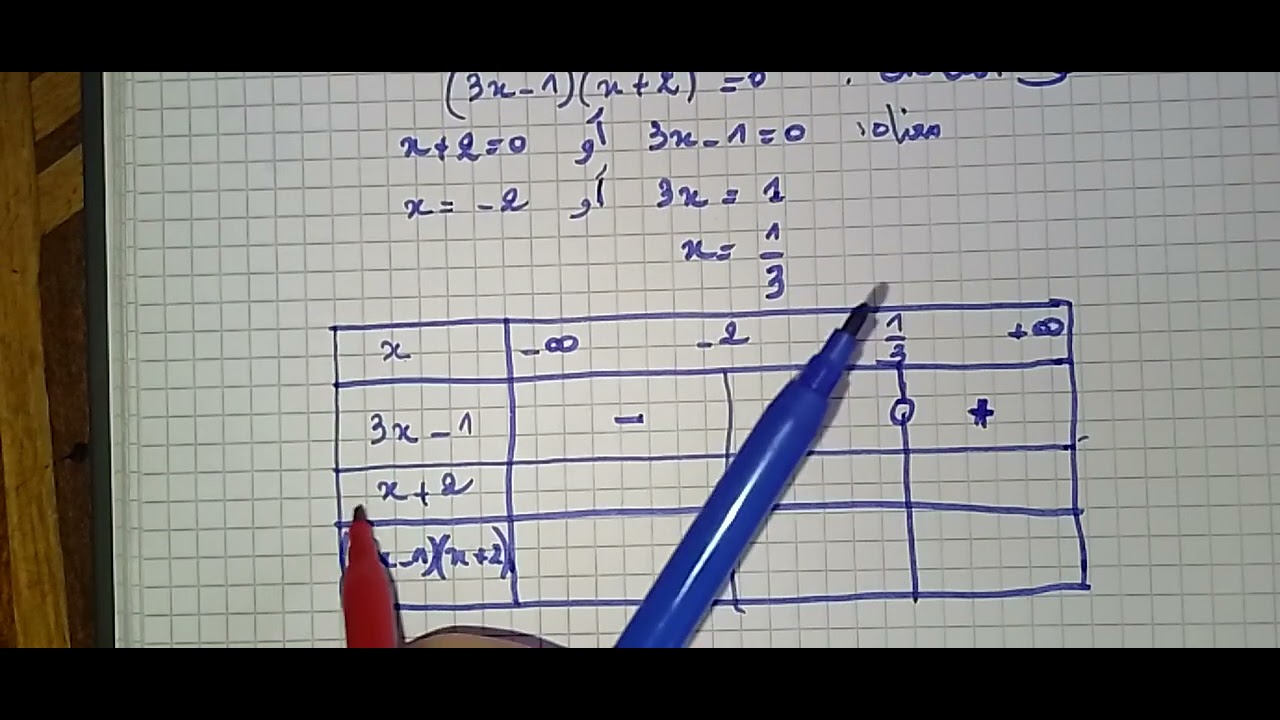 (3x-1)(x+2) =0
x+2=0 أو 3x-1=0 :معناه
x= -2 أو 3x = 1
x= 1/3
x -∞ -2 1/3 +∞
3x-1 - 0 +
x+2
x-1)(x+2)